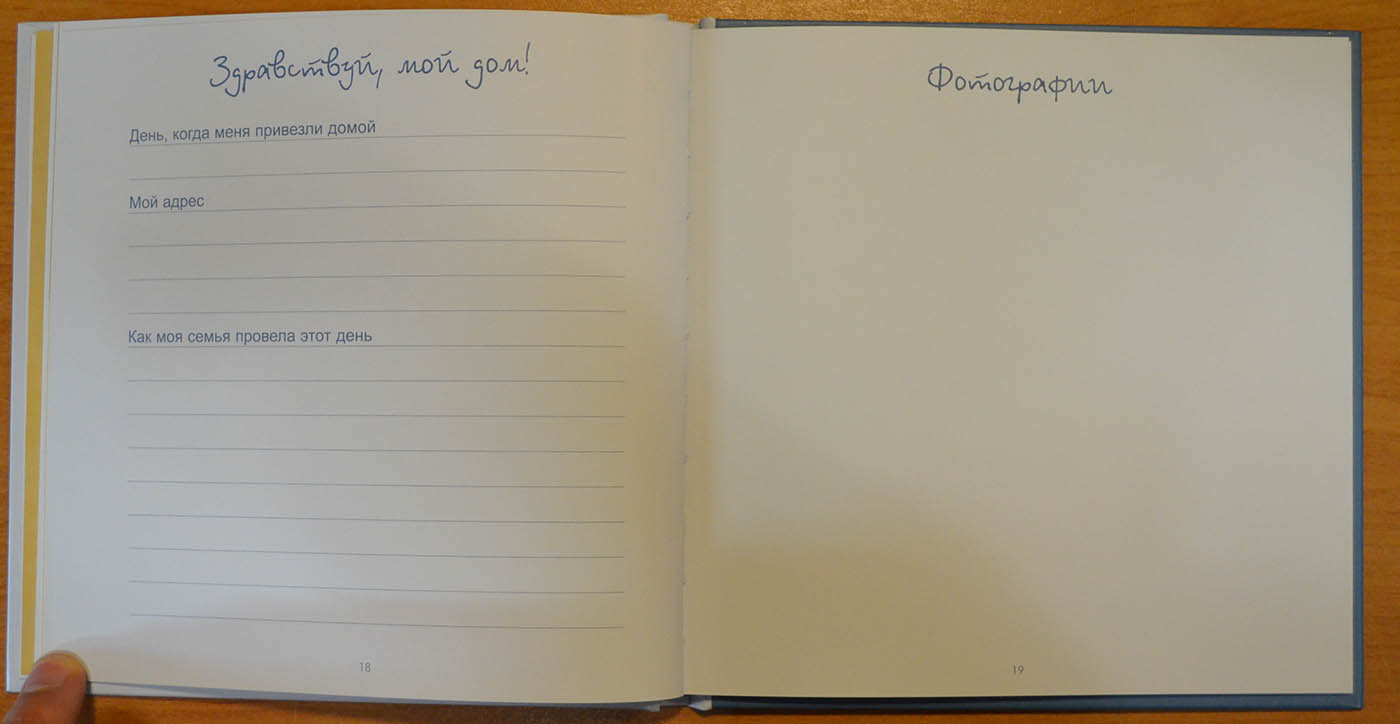 Здравствуй, мой дом!
День, когда меня привезли домой
Мой адрес
Как моя семья провела этот день
18
Фотографии
19